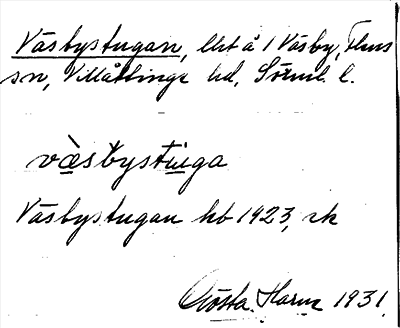 Väsbystugan, lht å 1 Väsby, Flens
sn, Villåttinge hd, Sörml. l.
väsbystuga
Väsbystugan hb 1923, rk
Gösta Harne 1931.